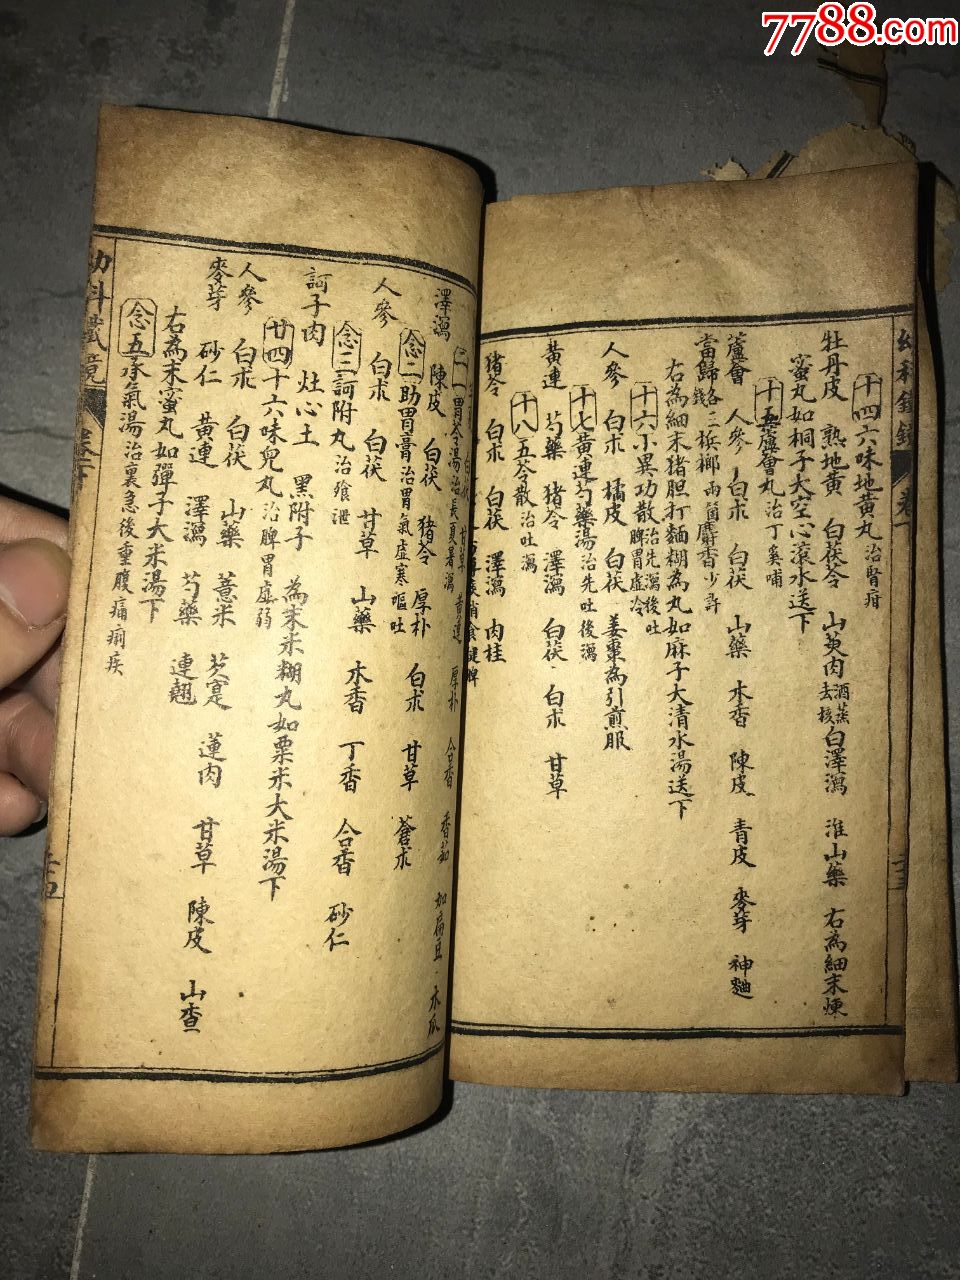 7788.com
十四六味地黃丸治腎疳
牡丹皮 熟地黃 白茯苓 山萸肉酒蒸去核 白澤瀉 淮山藥 右為細末煉
蜜丸如桐子大空心滾水送下
十五蘆薈丸治丁奚哺
蘆會 人參 白朮 白茯 山藥 木香 陳皮 青皮 麥芽 神麯
當歸各二錢 梹榔兩個 麝香少許
右為細末猪胆打麵糊為丸如麻子大清水湯送下
十六小異功散治先瀉後吐脾胃虛冷
人參 白朮 橘皮 白茯 姜棗為引煎服
十七黃連芍藥湯治先吐後瀉
黃連 芍藥 猪苓 澤瀉 白茯 白朮 甘草
十八五苓散治吐瀉
猪苓 白朮 白茯 澤瀉 肉桂
胃苓湯治長夏暑瀉
厚朴 合香 香茹 如扁豆 木瓜
澤瀉 陳皮 白茯 猪苓 厚朴 白朮 甘草 蒼朮
念二助胃膏治胃氣虛寒嘔吐
人參 白朮 白茯 甘草 山藥 木香 丁香 合香 砂仁
念三訶附丸治飱泄
訶子肉 灶心土 黑附子 為末米糊丸如粟米大米湯下
廿四十六味兒丸治脾胃虛弱
人參 白朮 白茯 山藥 薏米 芡寔 蓮肉 甘草 陳皮 山查
麥芽 砂仁 黃連 澤瀉 芍藥 連翹
右為末蜜丸如彈子大米湯下
念五承氣湯治裏急後重腹痛痢疾
幼科鐵鏡
幼科鐵鏡 卷下